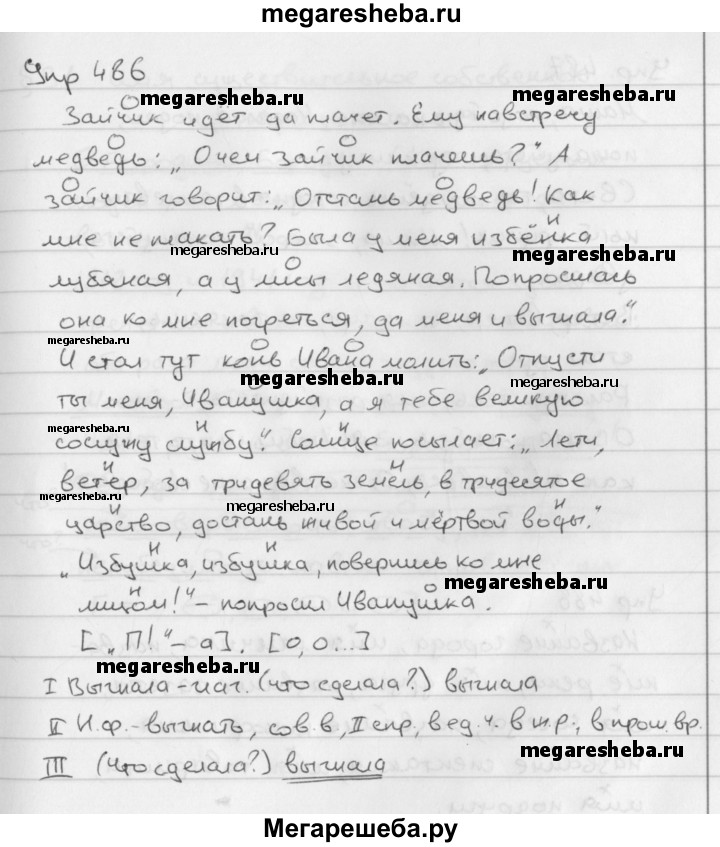 megaresheba.ru
Упр 486
megaresheba.ru megaresheba.ru
Зайчик идёт да плачет. Ему навстречу
медведь: „О чем зайчик плачешь?" А
зайчик говорит: „Отстань медведь! Как
мне не плакать? Была у меня избёнка
и и
megaresheba.ru megaresheba.ru
лубяная, а у лисы ледяная. Попросилась
она ко мне погреться, да меня и выгнала."
megaresheba.ru
И стал тут конь Ивана молить: „Отпусти
megaresheba.ru megaresheba.ru
ты меня, Иванушка, а я тебе великую
megaresheba.ru
сослужу службу". Солнце посылает: „Лети,
и и
ветер, за тридевять земель, в тридесятое
и и
megaresheba.ru megaresheba.ru
царство, достань живой и мёртвой воды."
и и
„Избушка, избушка, повернись ко мне
и и
megaresheba.ru
лицом!" – попросил Иванушка.
и
[„П!" – а]. [О, О...]
megaresheba.ru
I Выгнала – глаг. (что сделала?) выгнала
II Н.ф. – выгнать, сов.в., II спр., в ед.ч. в ж.р., в прош.вр.
megaresheba.ru
III (Что сделала?) выгнала
Мегарешеба.ру